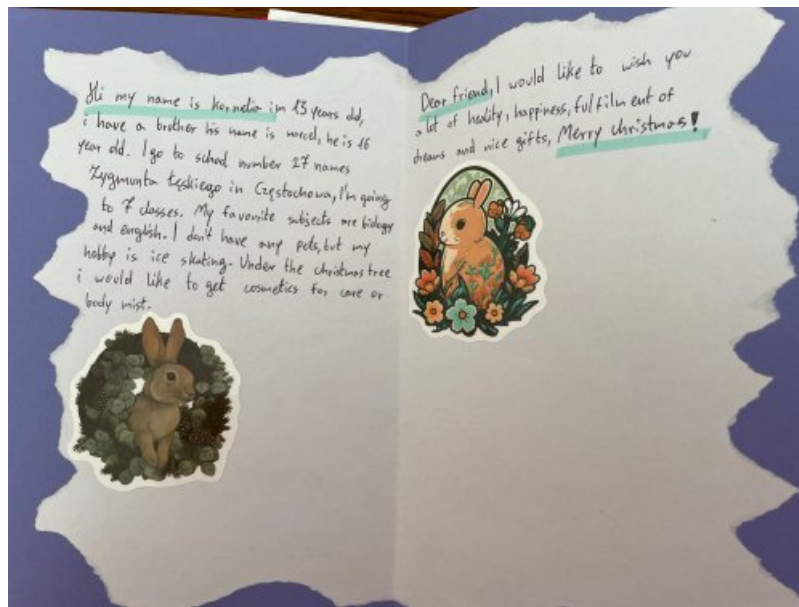 Hi my name is Kornelia im 13 years old,
i have a brother his name is marcel, he is 16
year old. I go to school number 27 names
Zygmunta Łęskiego in Częstochowa, I'm going
to 7 classes. My favorite subjects are biology
and english. I don't have any pets, but my
hobby is ice skating. Under the christmas tree
i would like to get cosmetics for care or
body mist.
Dear friend, I would like to wish you
a lot of heality, happiness, fulfilment of
dreams and nice gifts, Merry christmas!